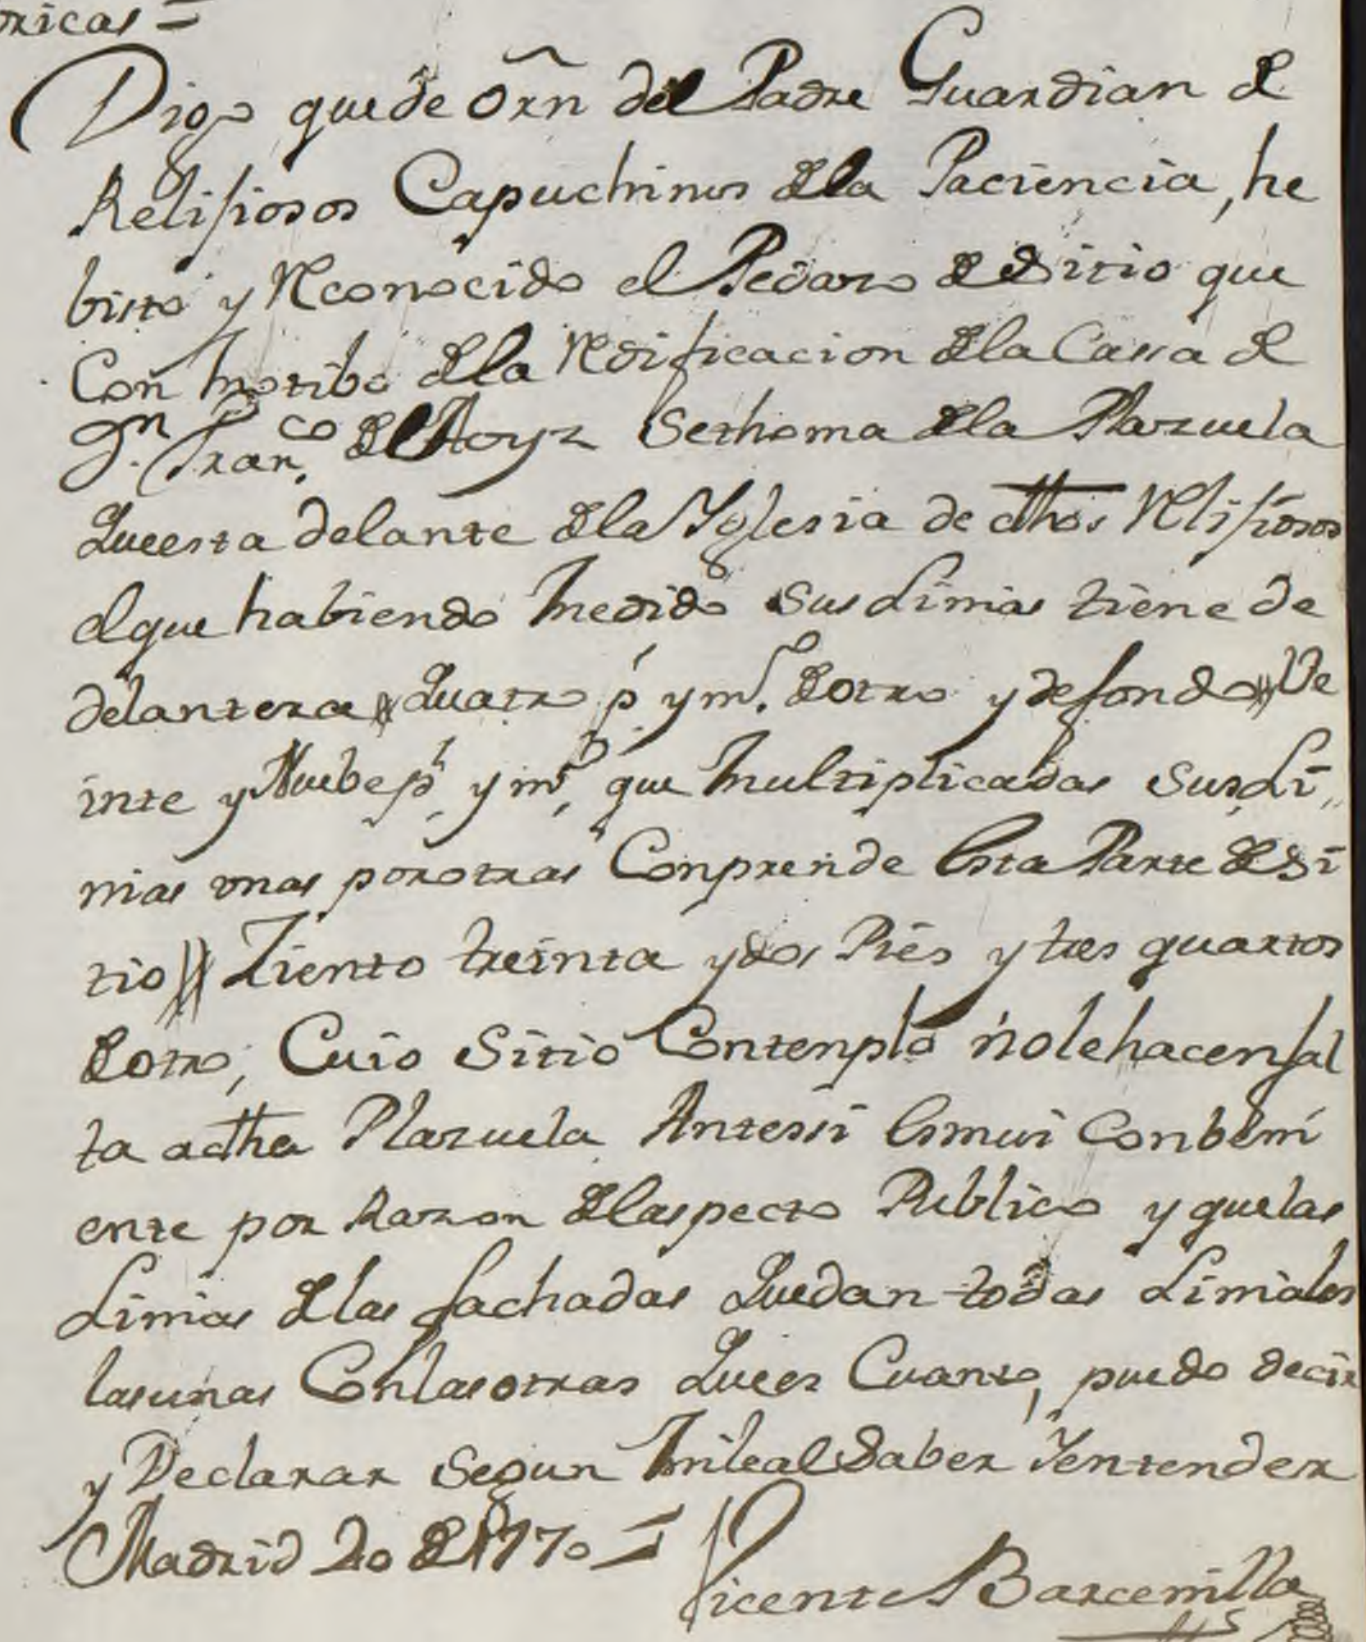 oricas =
Digo que de Orn del Padre Guardian de
Relijiosos Capuchinos de la Paciencia, he
bisto y Reconocido el Pedazo de Sitio que
Con motibo de la Redificacion de la Cassa de
Dn. Franco. de l Hoyz Sethoma de la Plazuela
Queesta delante de la Yglesia de dthos Relijiosos
elque habiendo medido sus Linias tiene de
delantera // Quatro ps y mo. de otro y de fondo // Ve
inte y Nuebe ps. y mo. que multiplicadas sus Li,,
nias unas por otras Conprende esta Parte de Si
tio // Ziento treinta y dos Pies y tres quartos
de otro, Cuio Sitio Contenplo no le hacen fal
ta a dtha Plazuela Antessi es mui Conbeni
ente por Razon de l aspecto Publico y que las
Linias de las fachadas Quedan todas Liniales
las unas Con las otras Que es Cuanto, puedo decir
y Declarar segun mi leal Saber Y entender
Madrid 20 de 1770 =
Vicente Barcenilla